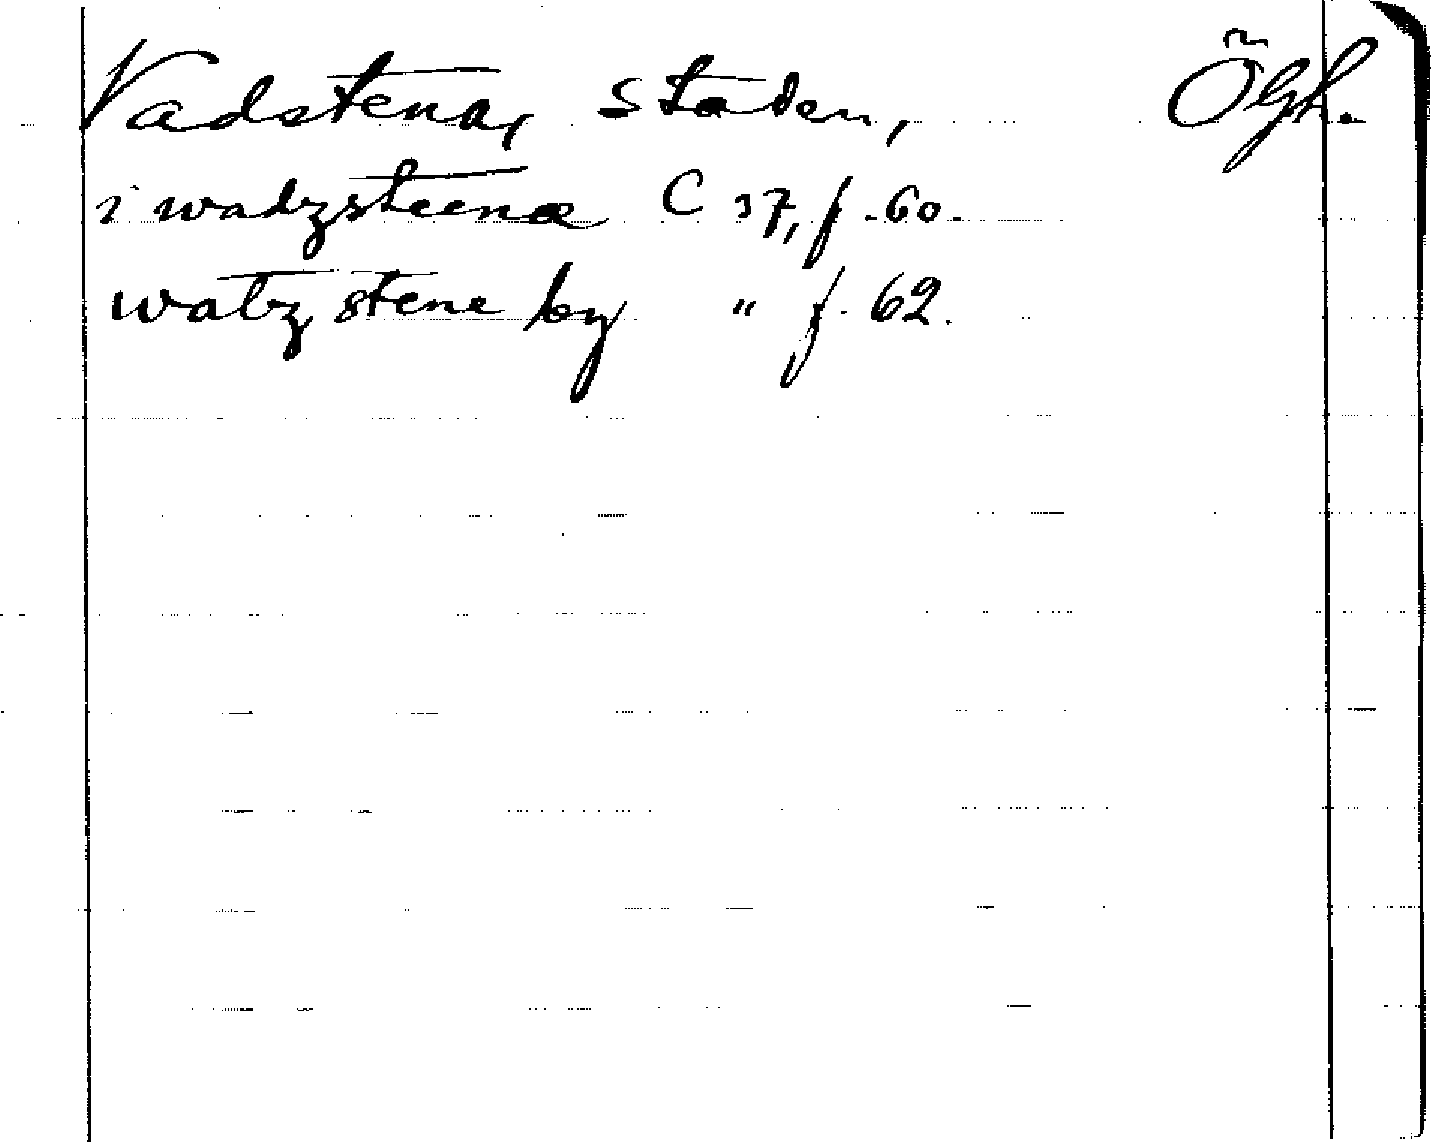 Vadstena, staden, Ögh.
i wadzsteenæ C 37, f. 60.
watzstene by " f. 62.